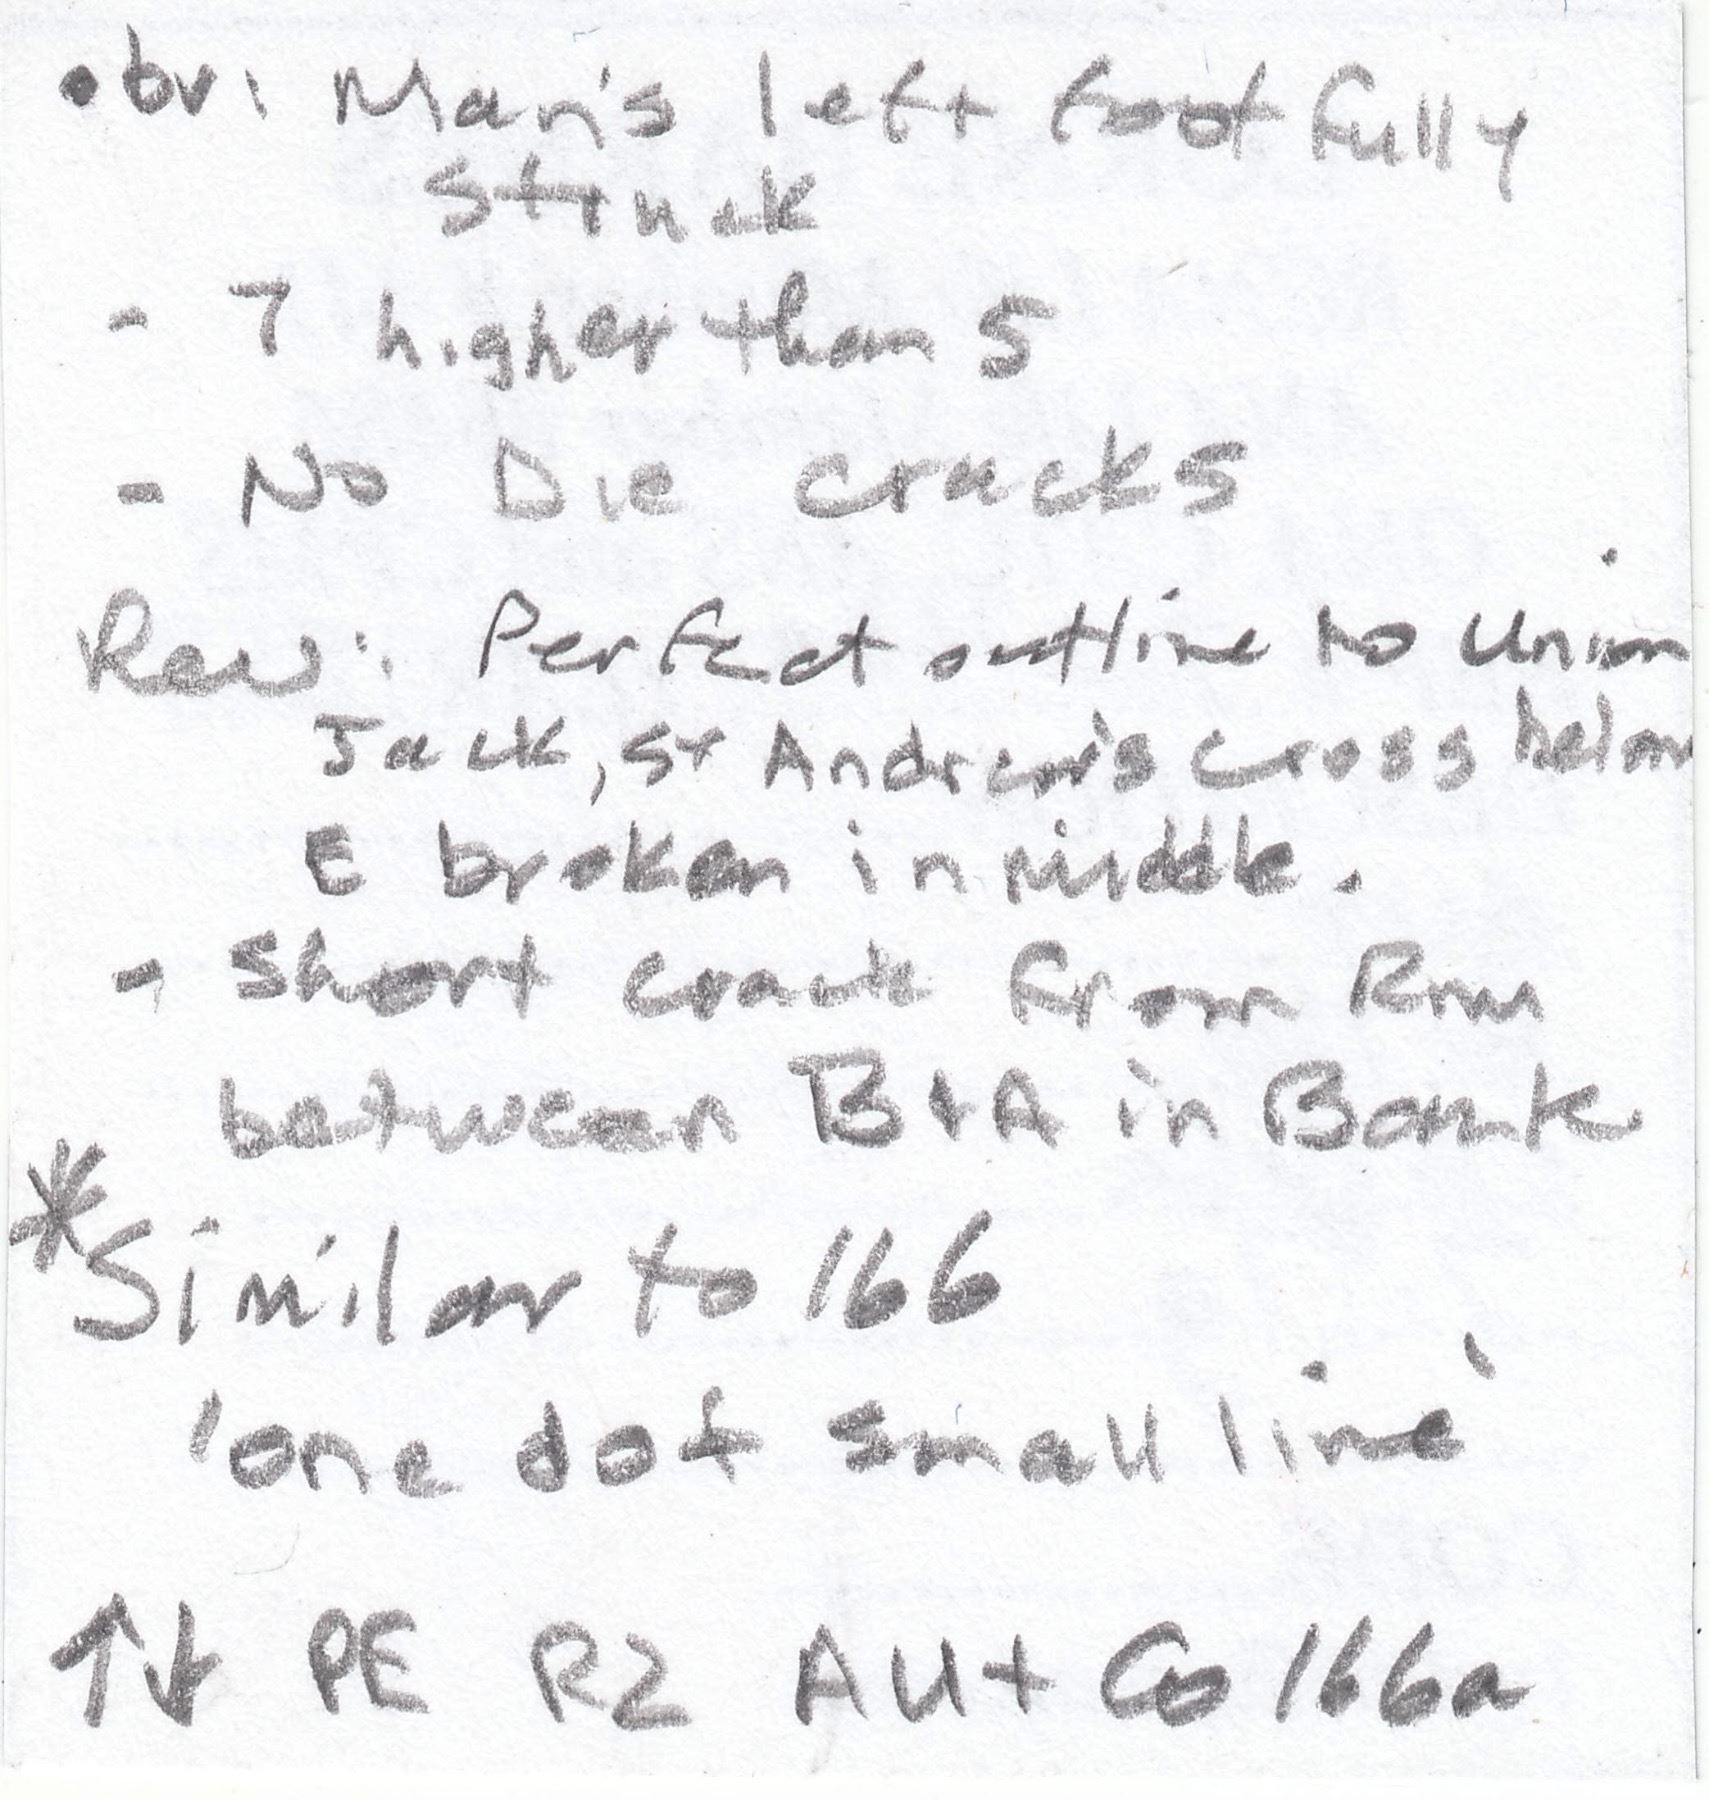 Obv: Man's left foot fully
struck
- 7 higher than 5
- No Die cracks
Rev: Perfect outline to Union
Jack, St Andrew's cross below
E broken in middle.
- Short crack from Rim
between B + A in Bank
* Similar to 166
'one dot small line'
↑↓ PE R2 AU+ Co 166a